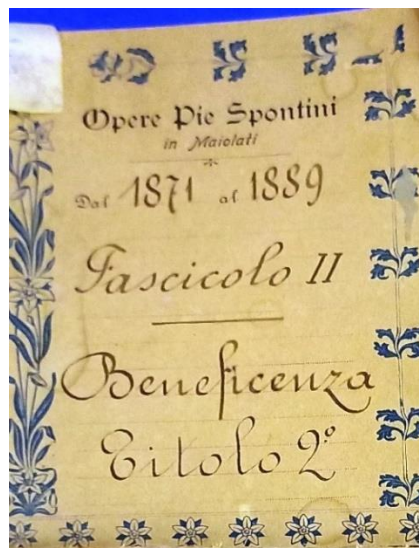 Opere Pie Spontini
in Maiolati
Dal 1871 al 1889
Fascicolo II
Beneficenza
Titolo 2º